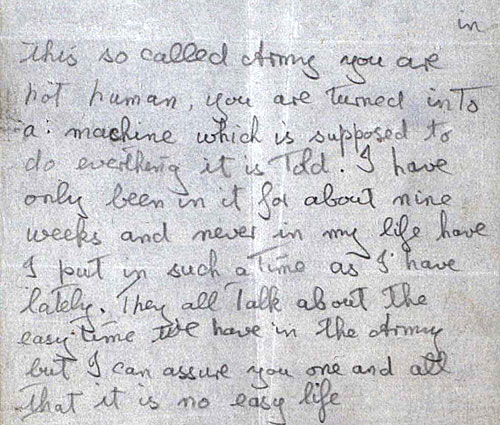 in
this so called Army you are
not human, you are turned into
a: machine which is supposed to
do everthing it is told. I have
only been in it for about nine
weeks and never in my life have
I put in such a time as I have
lately. They all talk about the
easy time we have in the Army
but I can assure you one and all
that it is no easy life